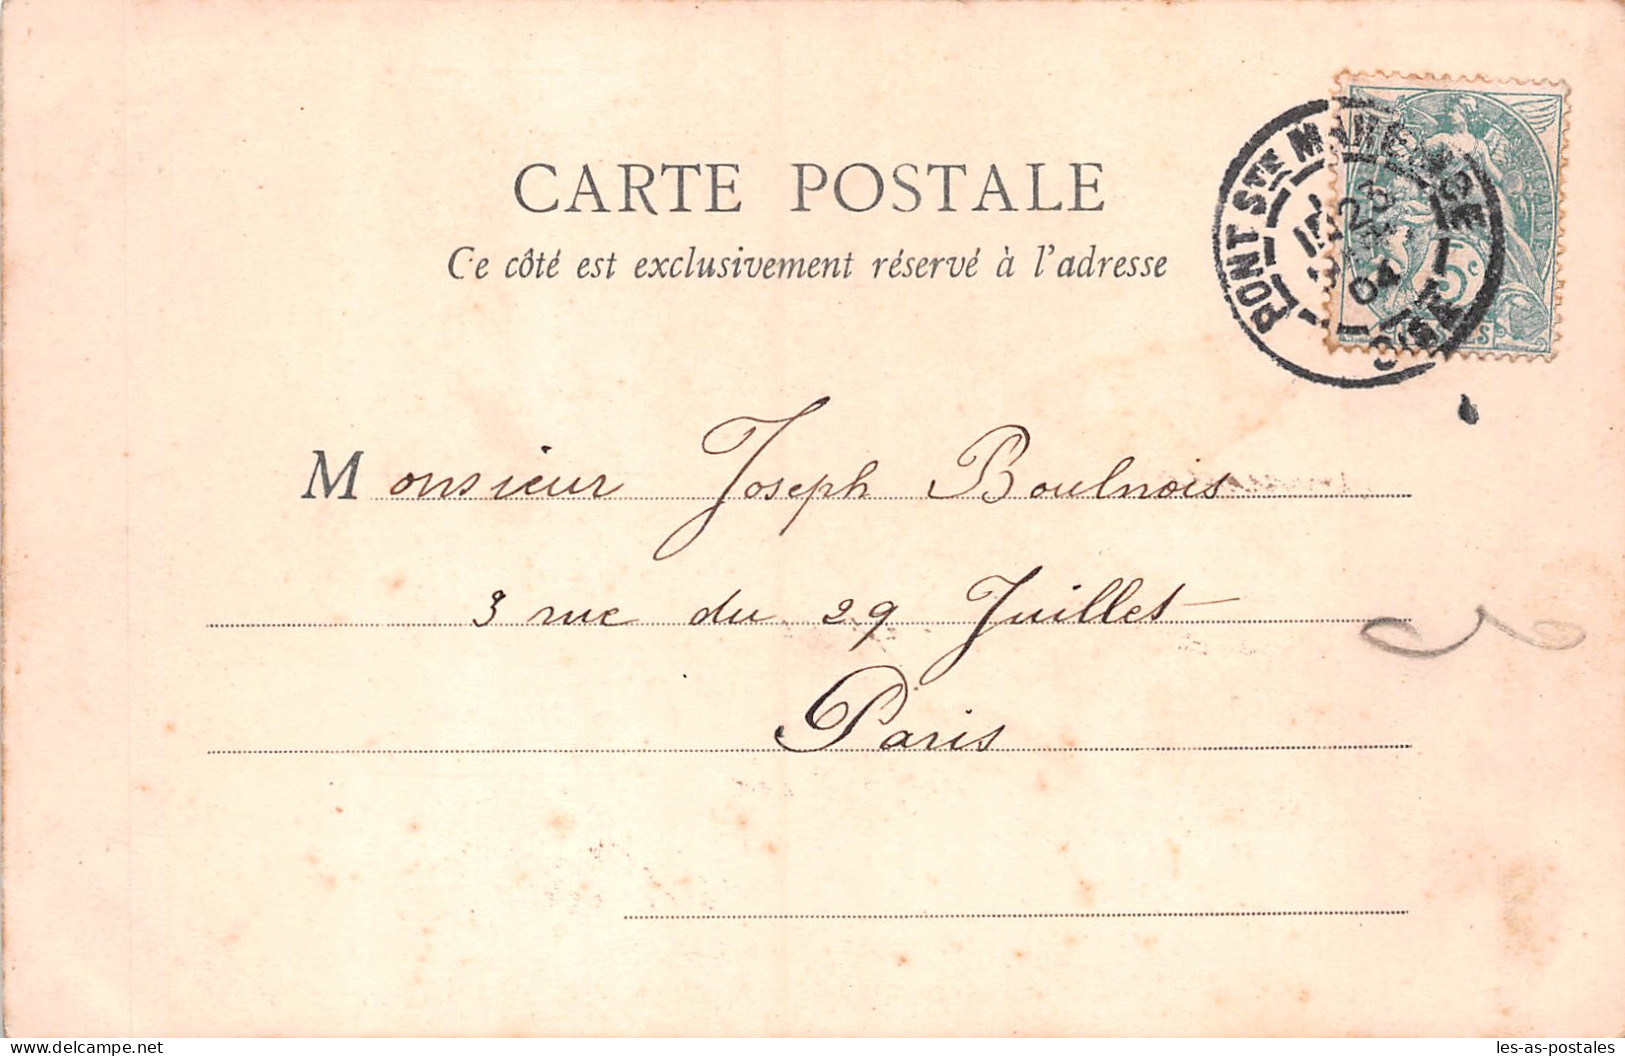 CARTE POSTALE
Ce côté est exclusivement réservé à l'adresse
PONT STE MAXENCE
04
OISE
5c
Monsieur Joseph Boulnois
3 rue du 29 Juillet
Paris
delcampe.net
les-as-postales